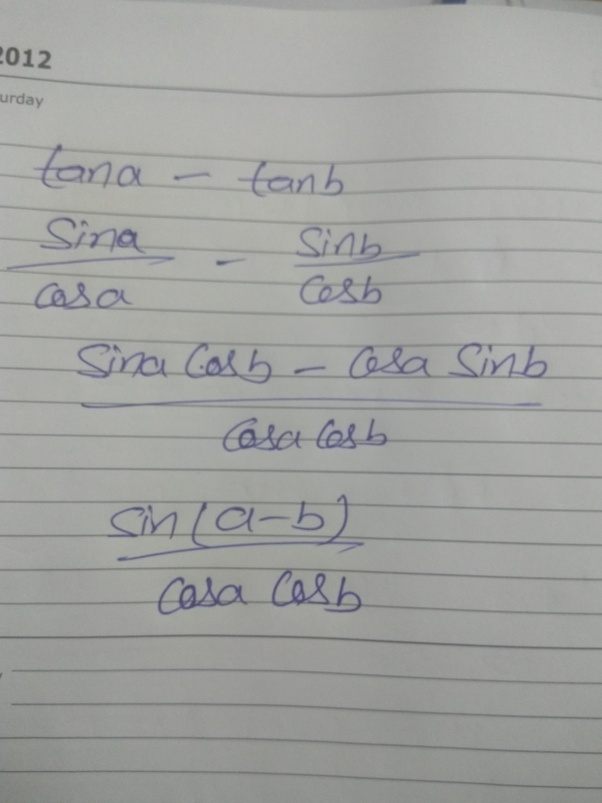 2012
urday
tana - tanb
Sina/cosa - Sinb/Cosb
Sina Cosb - Cosa Sinb
Cosa Cosb
Sin(a-b)
Cosa Cosb